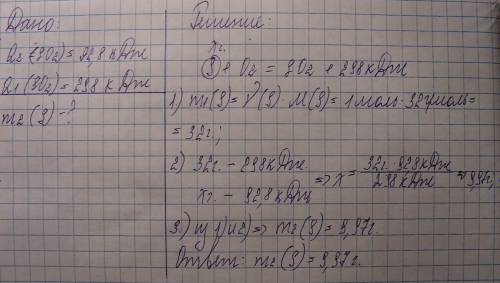 Дано:
Q₂ (SO₂) = 92,8 кДж
Q₁ (SO₂) = 298 кДж
m₂ (S) - ?
Решение:
xг.
S + O₂ = SO₂ + 298 кДж
1) m₁(S) = ν(S) · M(S) = 1 моль · 32 г/моль =
= 32г.;
2) 32г. - 298 кДж
xг. - 92,8 кДж
=> x = 32г. · 92,8 кДж / 298 кДж = 9,97г.
3.) из 1) и 2) => m₂(S) = 9,97г.
Ответ: m₂(S) = 9,97г.